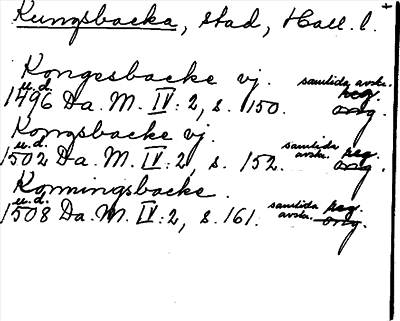 Kungsbacka, stad, Hall. l. +
Kongesbacke vj. samtida avskr.
u.d. reg.
1496 Da. M. IV: 2, s. 150. orig.
Kongsbacke vj.
u.d. samtida reg.
1502 Da. M. IV: 2, s. 152. avskr. orig.
Konningsbacke.
u.d. samtida reg.
1508 Da. M. IV: 2, s. 161. avskr. orig.